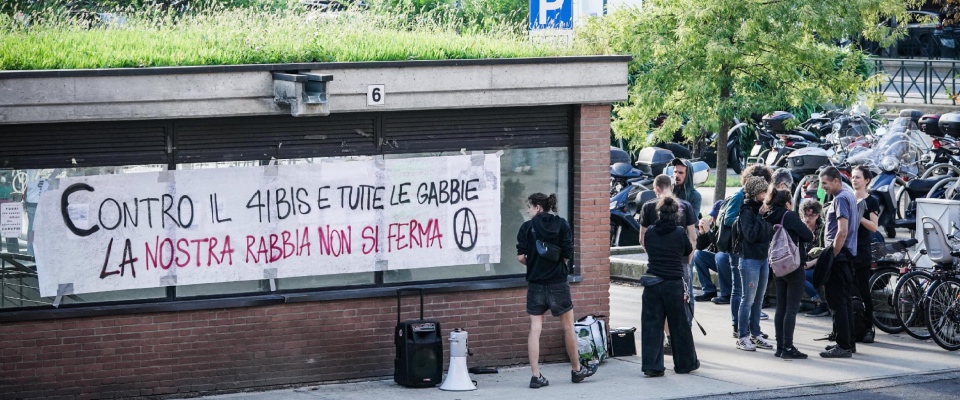 P
6
CONTRO IL 41BIS E TUTTE LE GABBIE
LA NOSTRA RABBIA NON SI FERMA Ⓐ